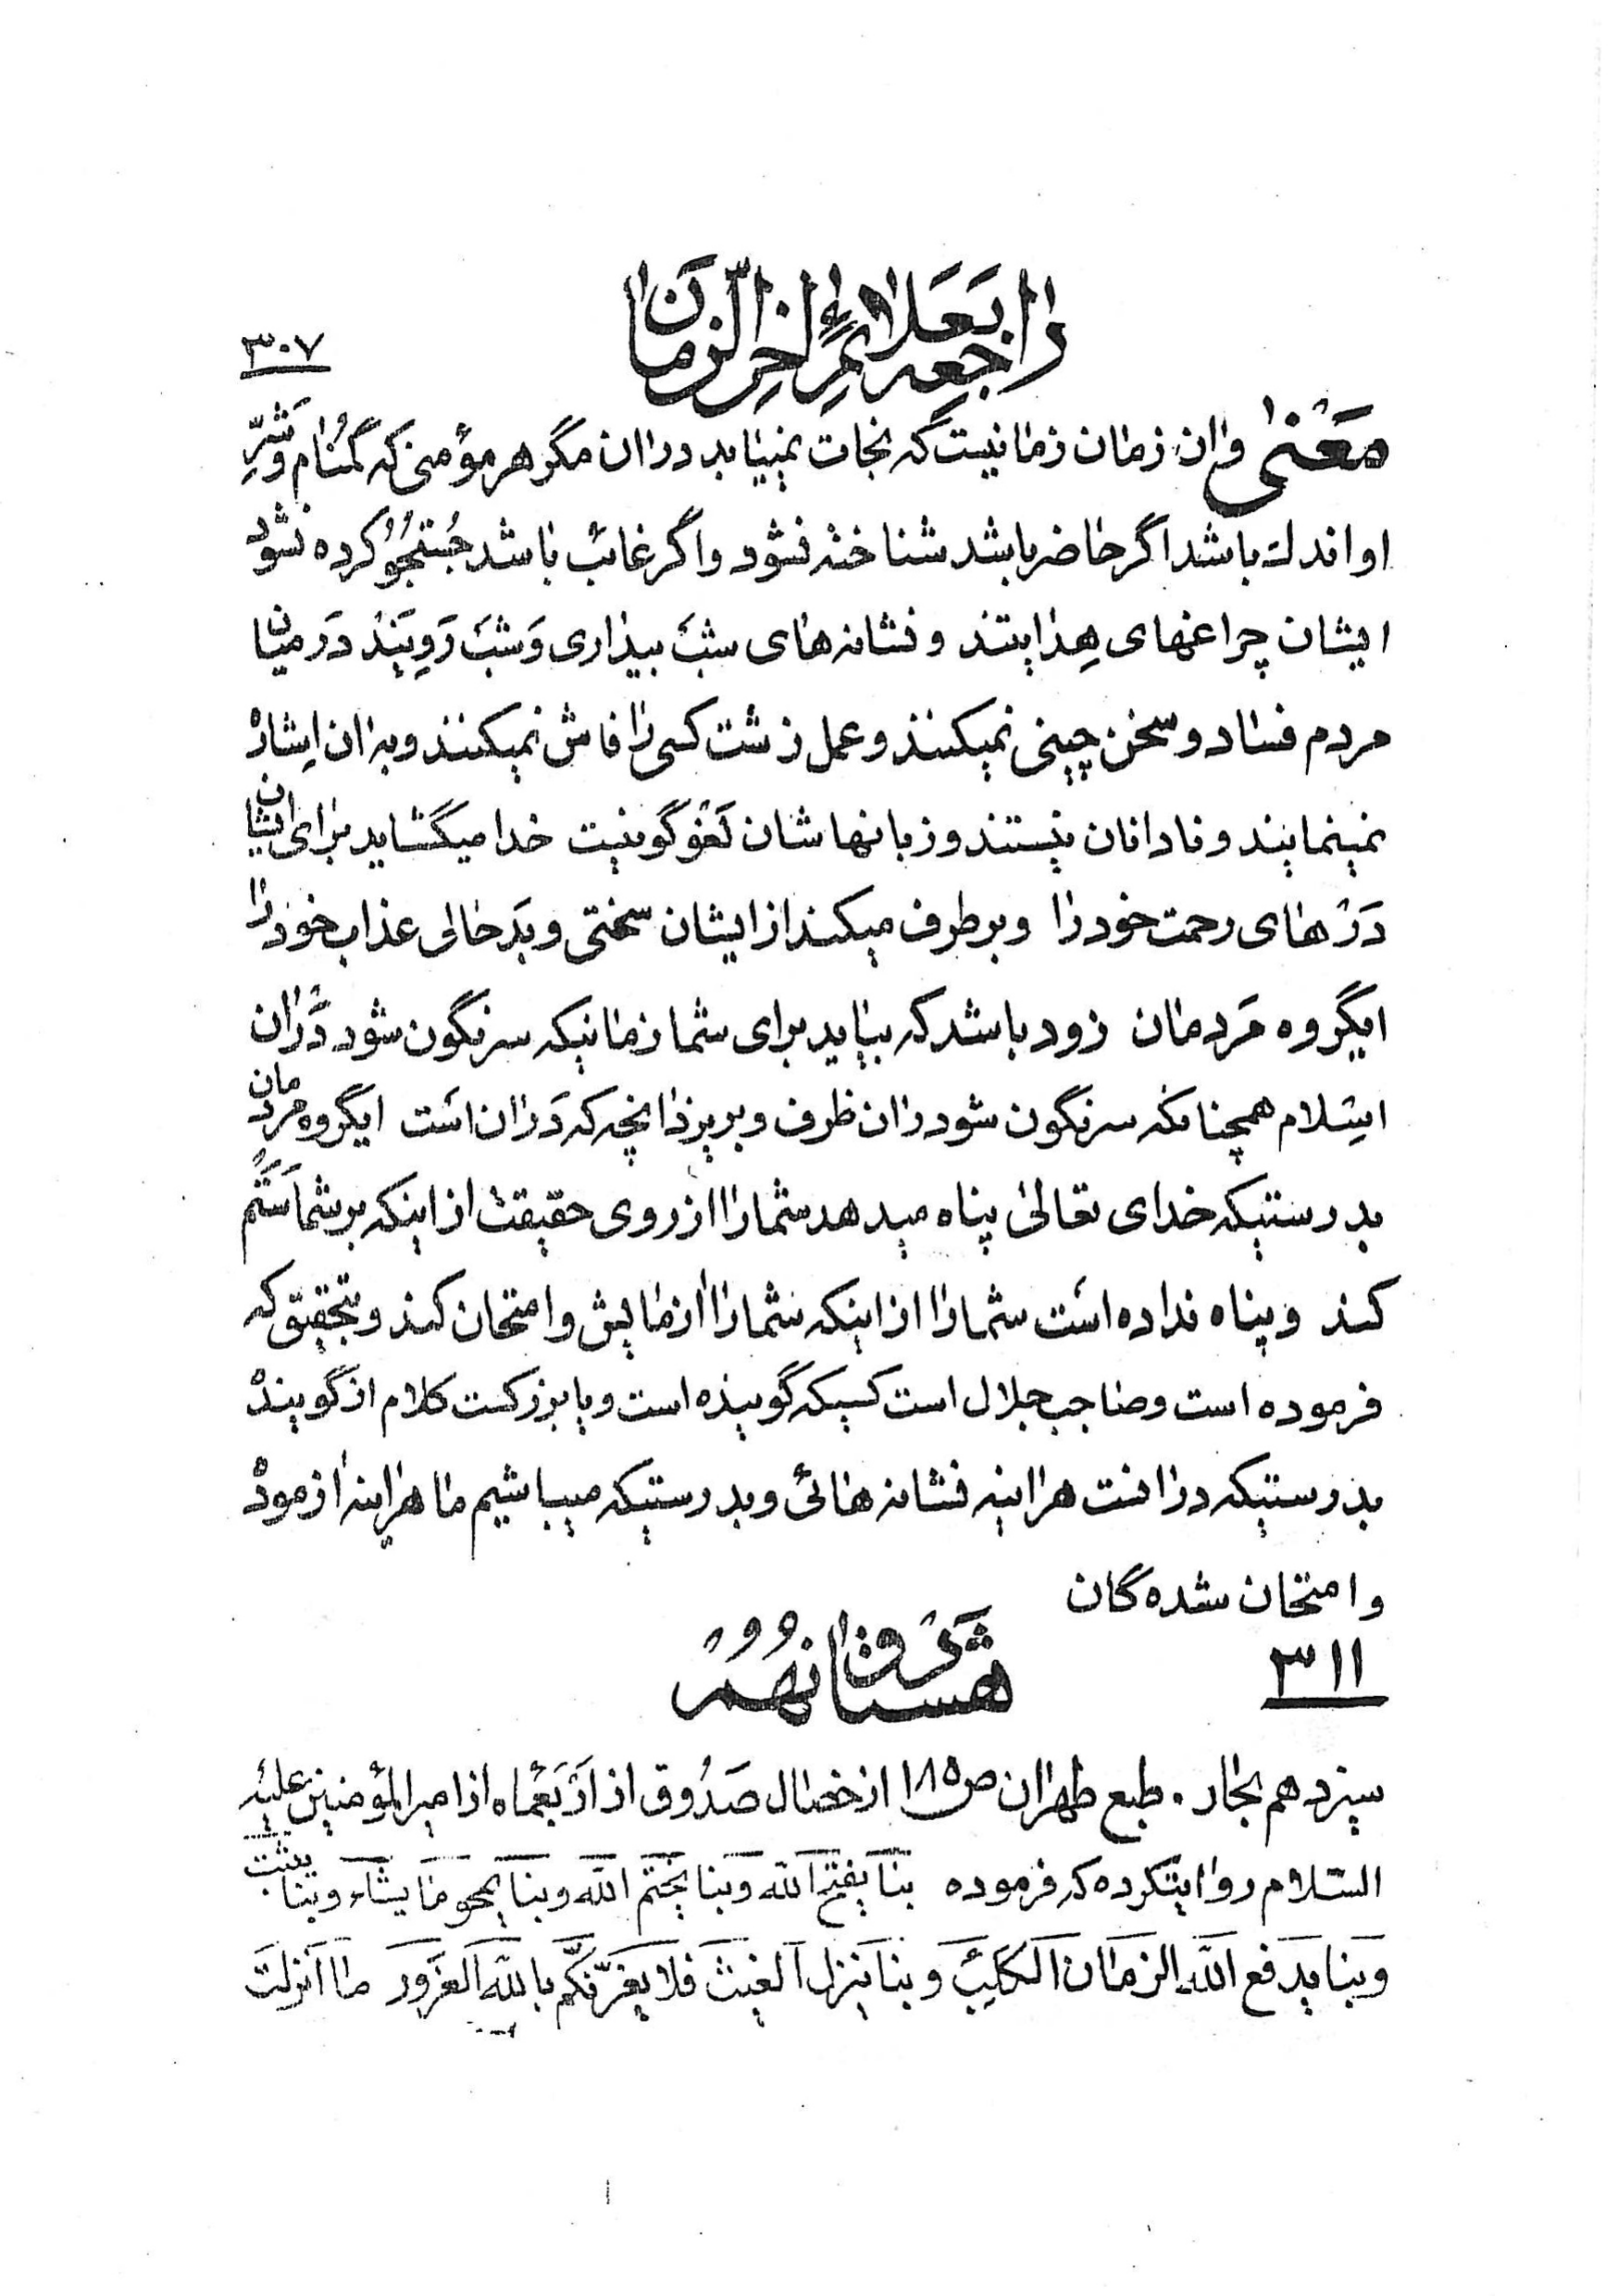 راجعه بعلائم اخر الزمان
۳۰۷
معنی وان زمان زمانیست که نجات نمییابد دران مگر هر مؤمنی که گمنام وشرّ
او اندک باشد اگر حاضر باشد شناخته نشود واگر غائب باشد جستجو کرده نشود
ایشان چراغهای هدایتند ونشانه های شب بیداری وشب رویند درمیان
مردم فساد وسخن چینی نمیکنند وعمل زشت کسی را فاش نمیکنند وبه ان اشاره
نمینمایند ونادانان نیستند وزبانهاشان لغو گو نیست خدا میگشاید برای ایشان
درهای رحمت خود را وبرطرف میکند از ایشان سختی وبدحالی عذاب خود را
ایگروه مردمان زود باشد که بیاید برای شما زمانیکه سرنگون شود دران
اسلام همچنانکه سرنگون شود دران ظرف وبریزد انچه که دران است ایگروه مردمان
بدرستیکه خدای تعالی پناه میدهد شما را از روی حقیقت از اینکه بر شما ستم
کند وپناه نداده است شما را از اینکه شما را ازمایش وامتحان کند وبتحقیق که
فرموده است وصاحب جلال است کسیکه گوینده است وبا بزرگست کلام از گوینده
بدرستیکه درانست هراینه نشانه هائی وبدرستیکه میباشیم ما هراینه ازموده
وامتحان شده گان
۳۱۱
هشتاد ونهم
سیزدهم بحار. طبع طهران ص ۱۸۵ از خصال صدوق از اربعماه از امیرالمؤمنین علیه
السلام روایتکرده که فرموده بنا یفتح الله وبنا یختم الله وبنا یمحو ما یشاء وبنا یثبت
وبنا یدفع الله الزمان الکلب وبنا ینزل الغیث فلا یغرنکم بالله الغرور ما انزلت